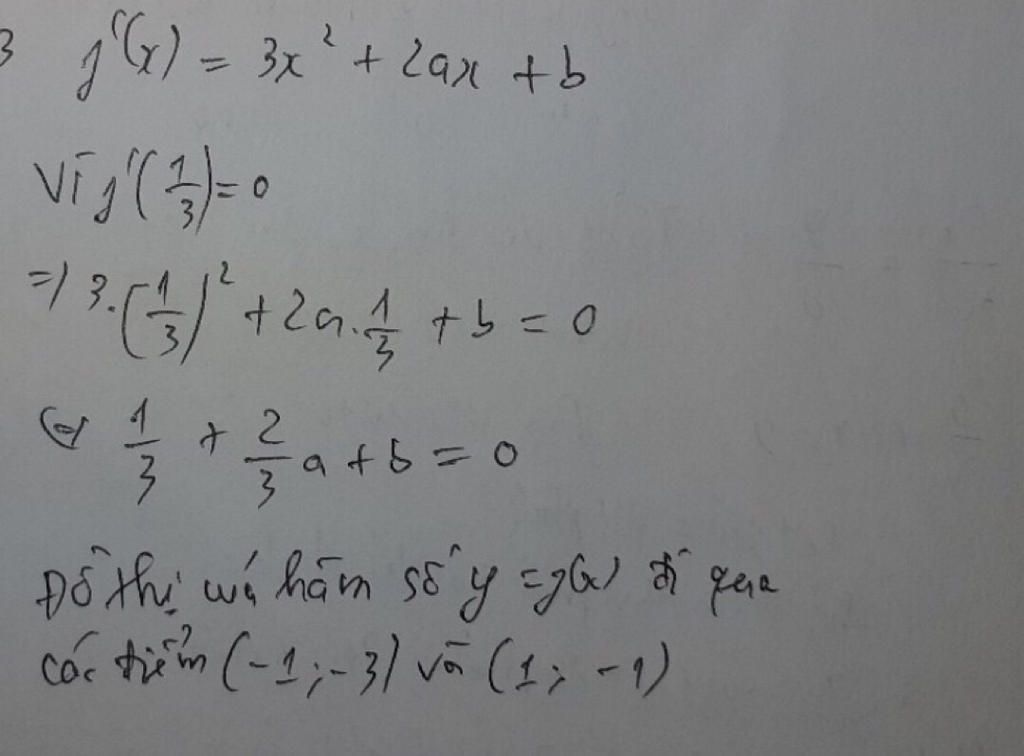 3 g'(x) = 3x² + 2ax + b
Vì g'(1/3) = 0
=) 3.(1/3)² + 2a.1/3 + b = 0
⇔ 1/3 + 2/3 a + b = 0
Đồ thị của hàm số y = g(x) đi qua
các điểm (-1; -3) và (1; -1)